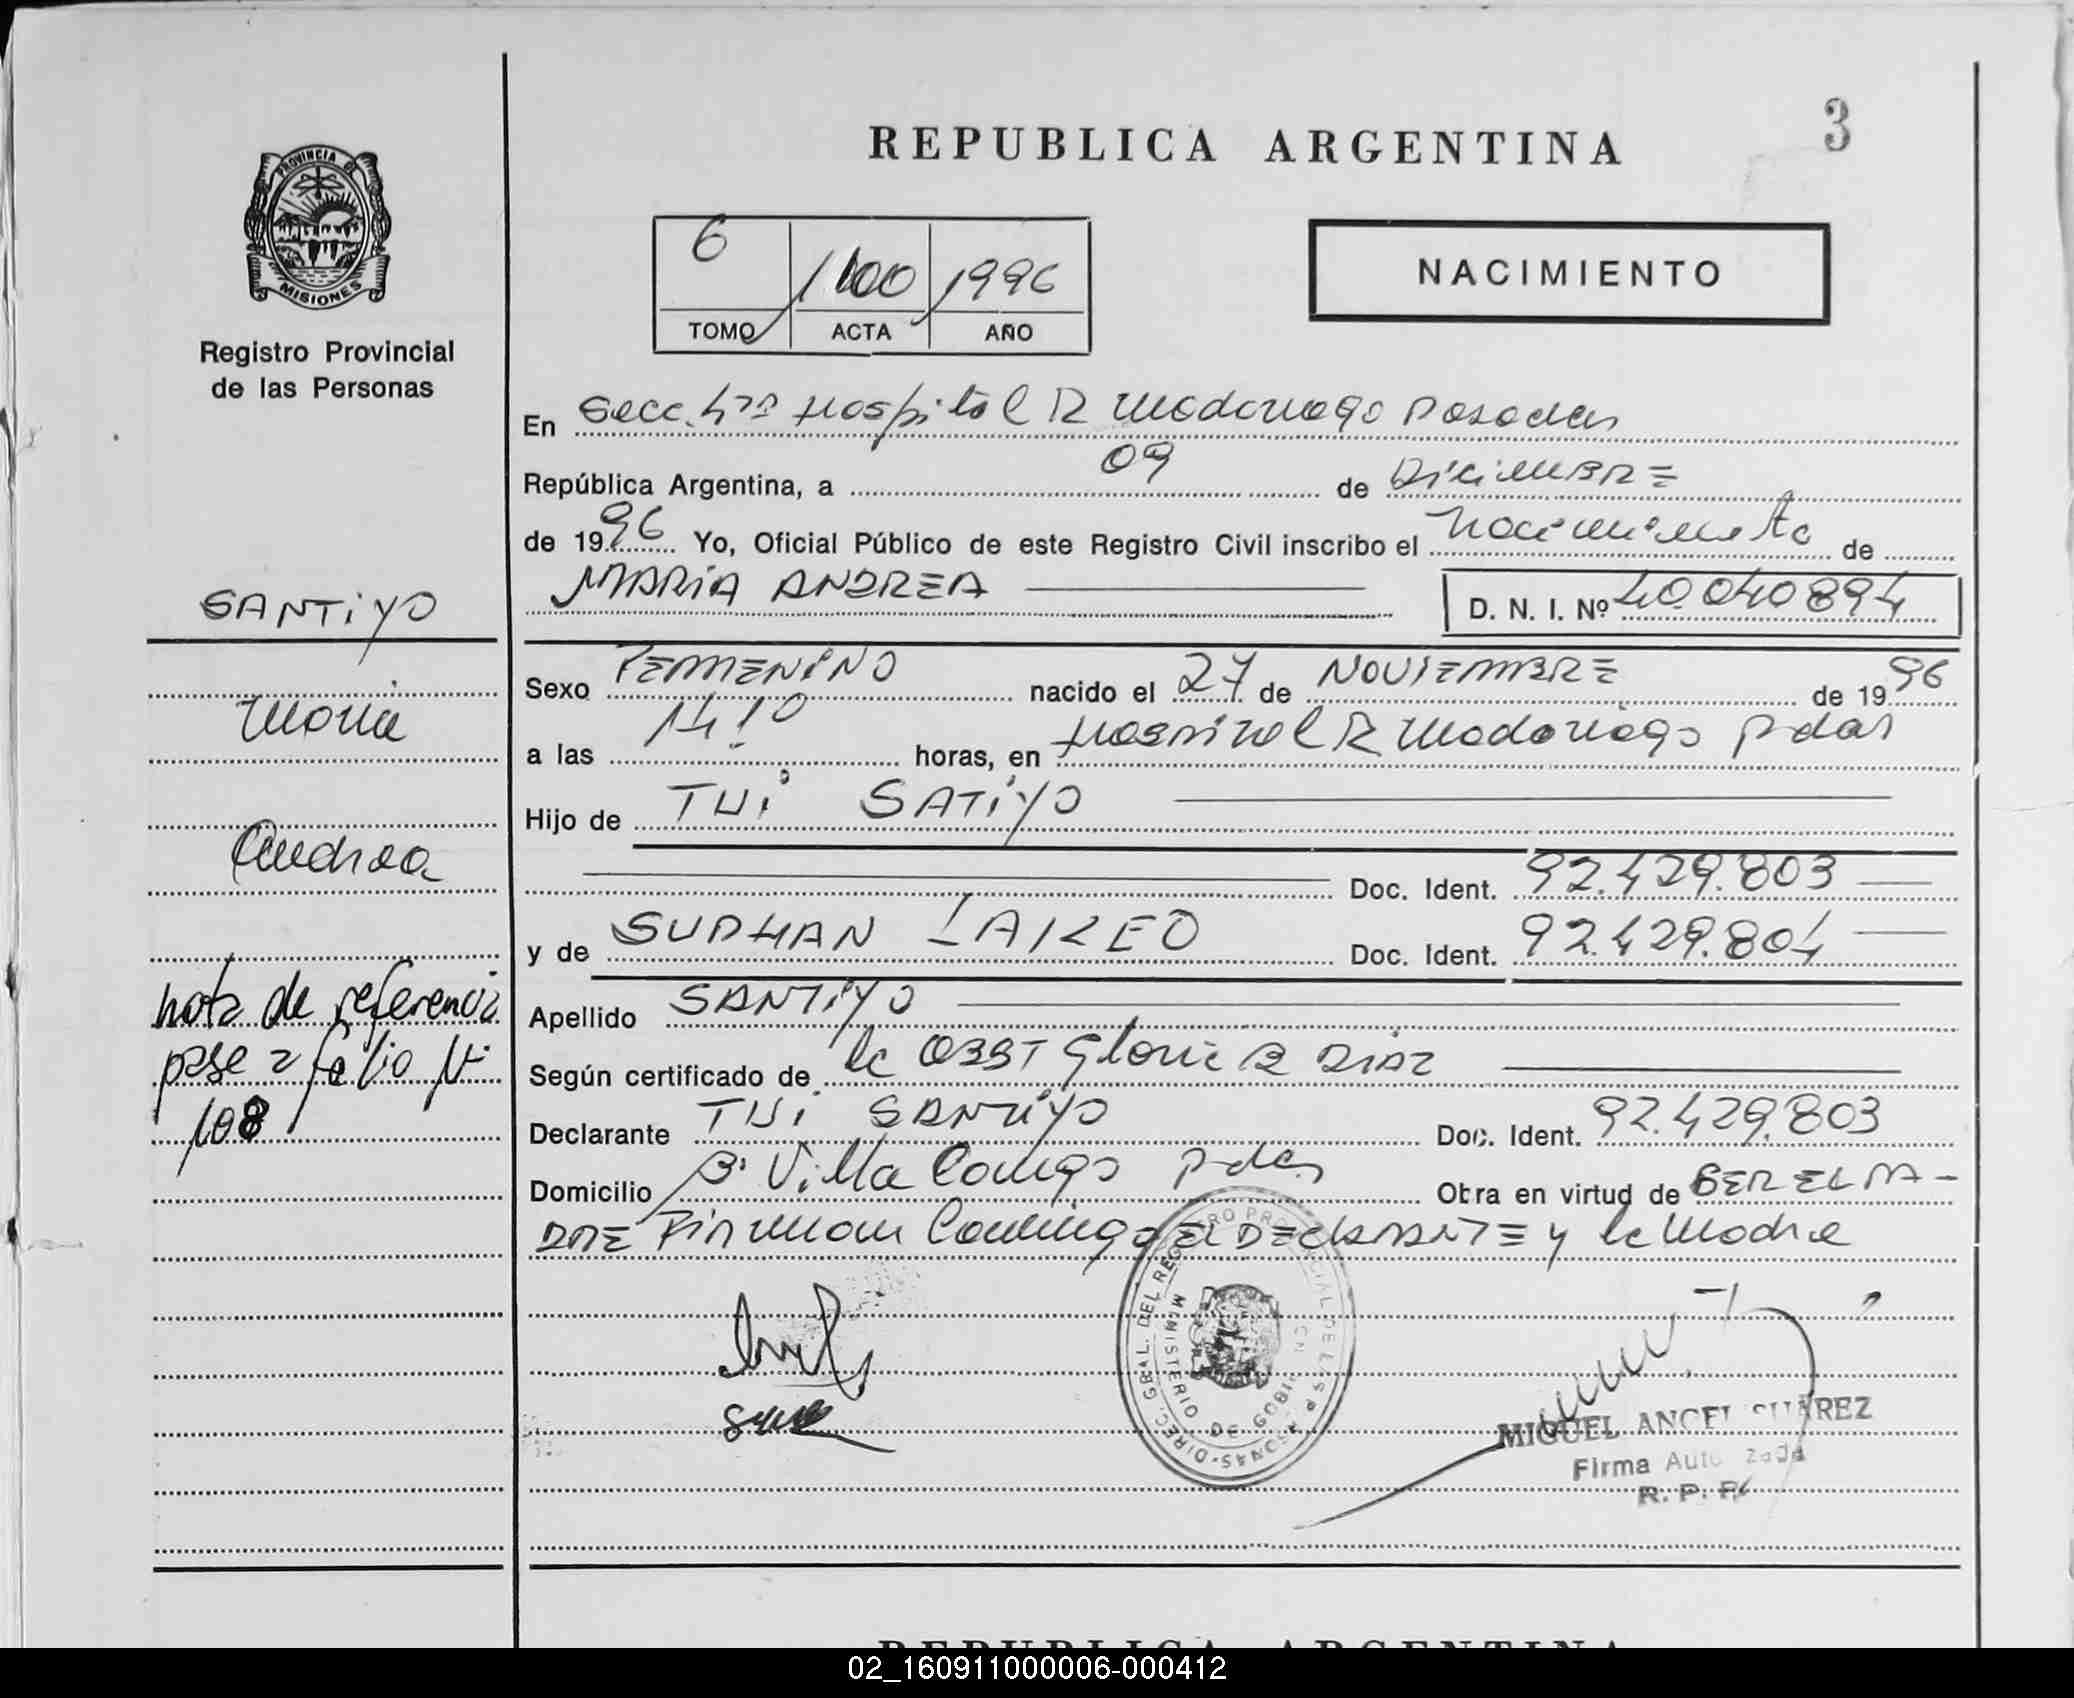 REPUBLICA ARGENTINA
3
PROVINCIA DE
MISIONES
Registro Provincial
de las Personas
6 1100 1996
TOMO ACTA AÑO
NACIMIENTO
En Secc. Hospital R Madariaga Posadas
República Argentina, a 09 de DICIEMBRE
de 1996 Yo, Oficial Público de este Registro Civil inscribo el nacimiento de
MARIA ANDREA D. N. I. Nº 40.040894
SANTIYO
Maria
Andrea
nota de referencia
pase a folio Nº
108
Sexo FEMENINO nacido el 27 de NOVIEMBRE de 1996
a las 14.10 horas, en Hospital R Madariaga Pdas
Hijo de TUI SATIYO
Doc. Ident. 92.429.803
y de SUPHAN LAKEO Doc. Ident. 92.429.804
Apellido SANTIYO
Según certificado de la OBST Gloria B DIAZ
Declarante TUI SANTIYO Doc. Ident. 92.429.803
Domicilio Bº Villa Pdas Otra en virtud de SER EL PA-
DRE Firman conmigo EL DECLARANTE y la Madre
DIREC. GRAL. DEL REGISTRO PROVINCIAL DE LAS PERSONAS
MINISTERIO DE GOBIERNO
MIGUEL ANGEL SUAREZ
Firma Autorizada
R. P. P.
REPUBLICA ARGENTINA
02_160911000006-000412